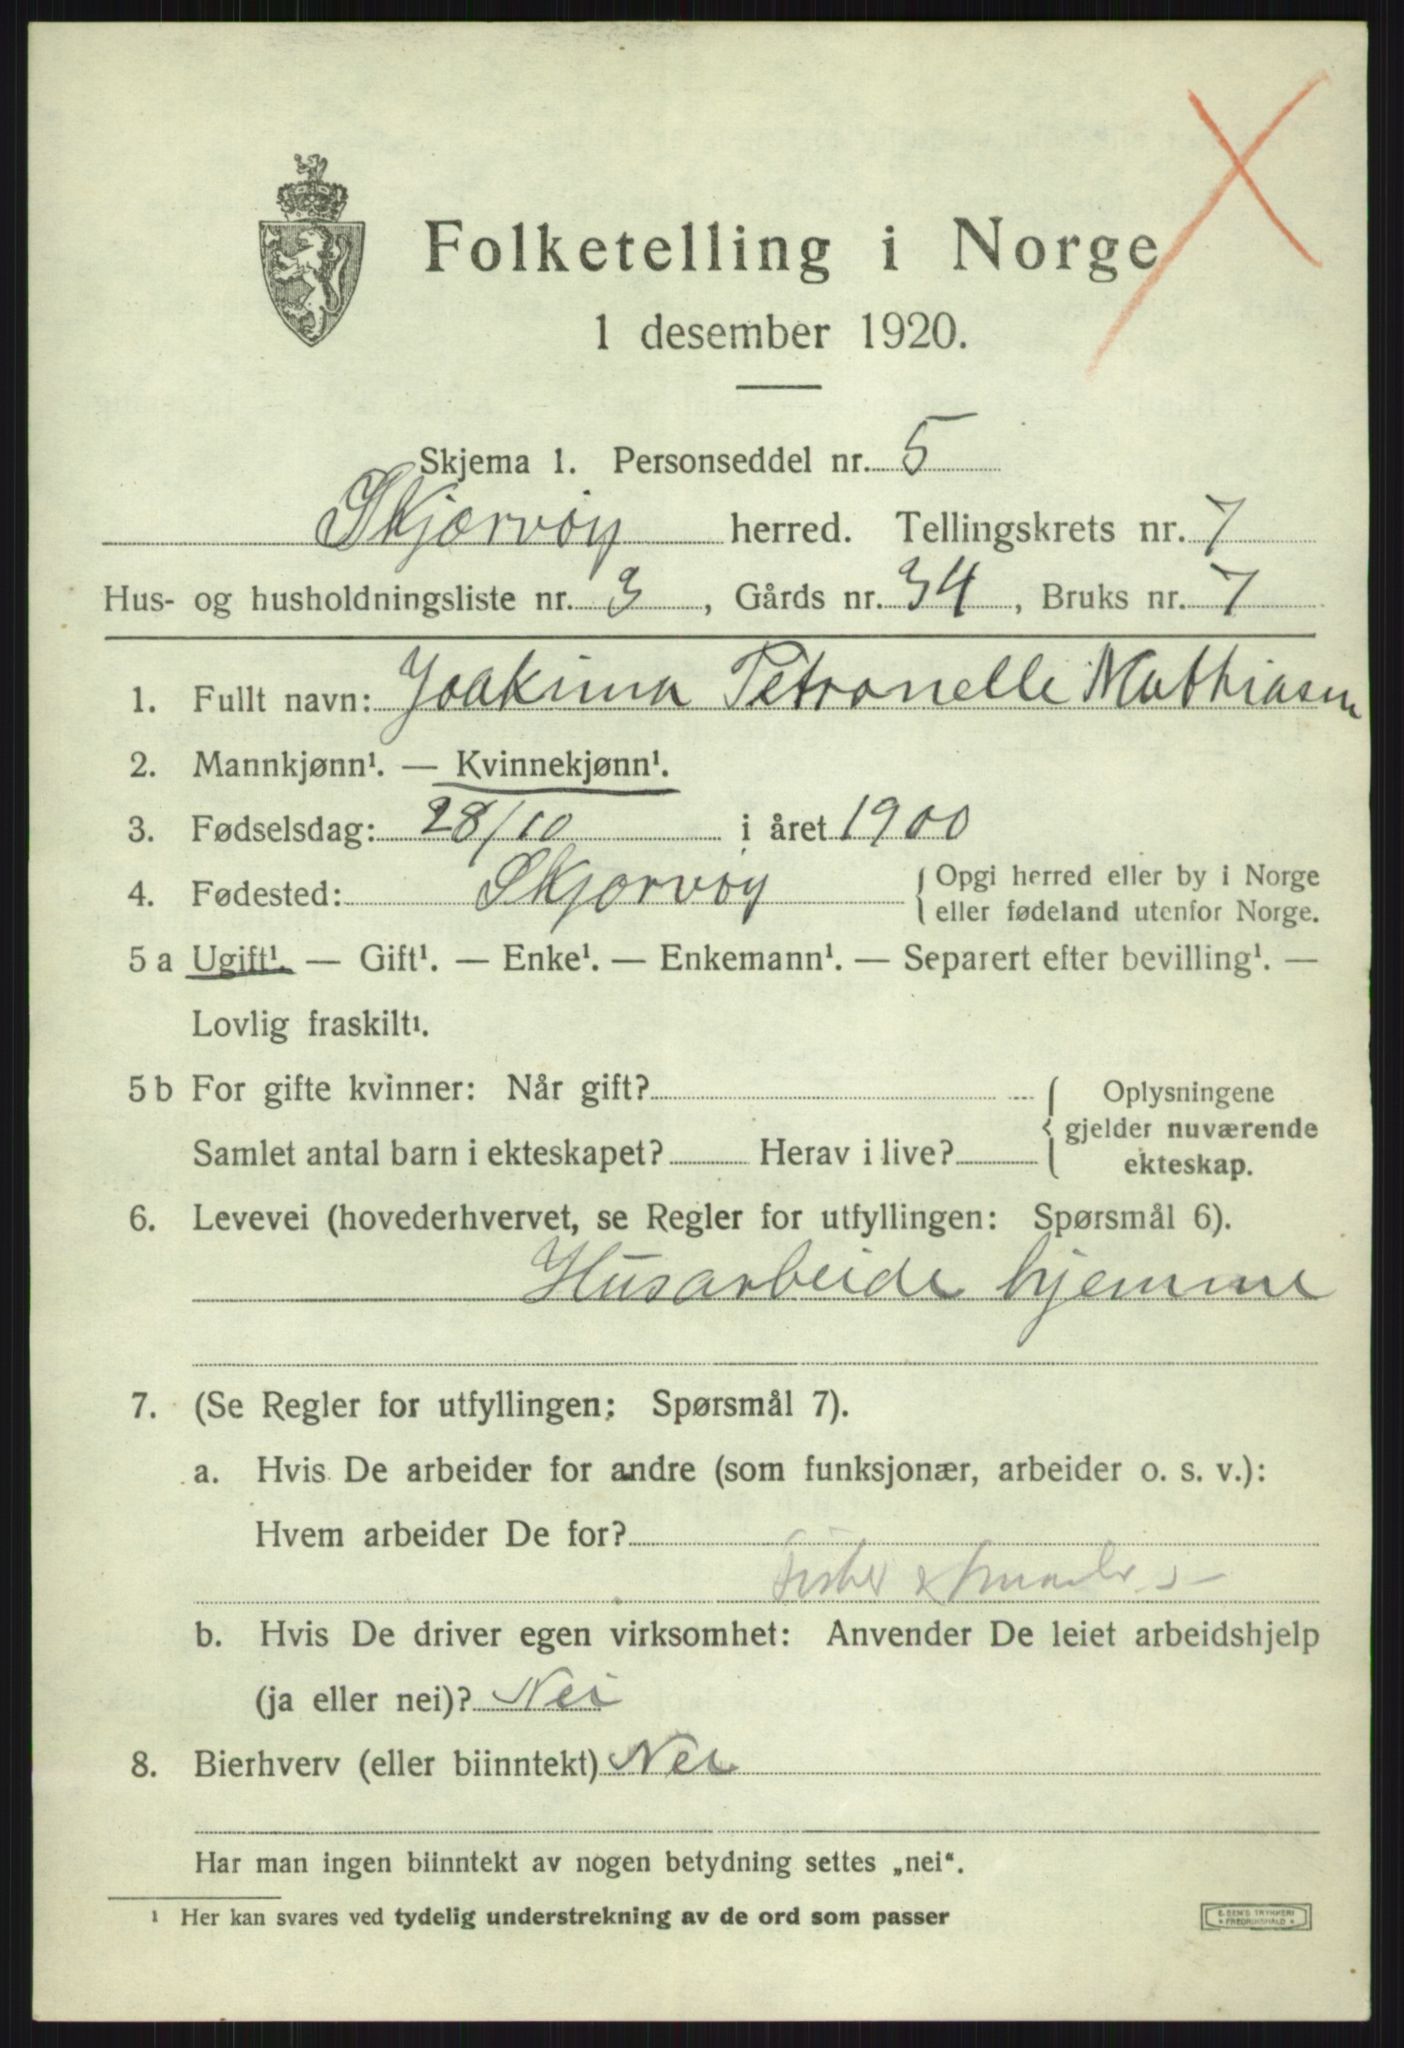 Folketelling i Norge
1 desember 1920.
Skjema 1. Personseddel nr. 5
Skjærvøy herred. Tellingskrets nr. 7
Hus- og husholdningsliste nr. 3, Gårds nr. 34, Bruks nr. 7
1. Fullt navn: Joakima Petronelle Mathiasen
2. Mannkjønn¹. — Kvinnekjønn¹.
3. Fødselsdag: 28/10 i året 1900
4. Fødested: Skjærvøy { Opgi herred eller by i Norge
eller fødeland utenfor Norge.
5 a Ugift¹. — Gift¹. — Enke¹. — Enkemann¹. — Separert efter bevilling¹. —
Lovlig fraskilt¹.
5 b For gifte kvinner: Når gift?
Samlet antal barn i ekteskapet? Herav i live?
{ Oplysningene
gjelder nuværende
ekteskap.
6. Levevei (hovederhvervet, se Regler for utfyllingen: Spørsmål 6).
Husarbeide hjemme
7. (Se Regler for utfyllingen: Spørsmål 7).
a. Hvis De arbeider for andre (som funksjonær, arbeider o. s. v.):
Hvem arbeider De for?
Fisker &
b. Hvis De driver egen virksomhet: Anvender De leiet arbeidshjelp
(ja eller nei)? Nei
8. Bierhverv (eller biinntekt) Nei
Har man ingen biinntekt av nogen betydning settes „nei“.
¹ Her kan svares ved tydelig understrekning av de ord som passer